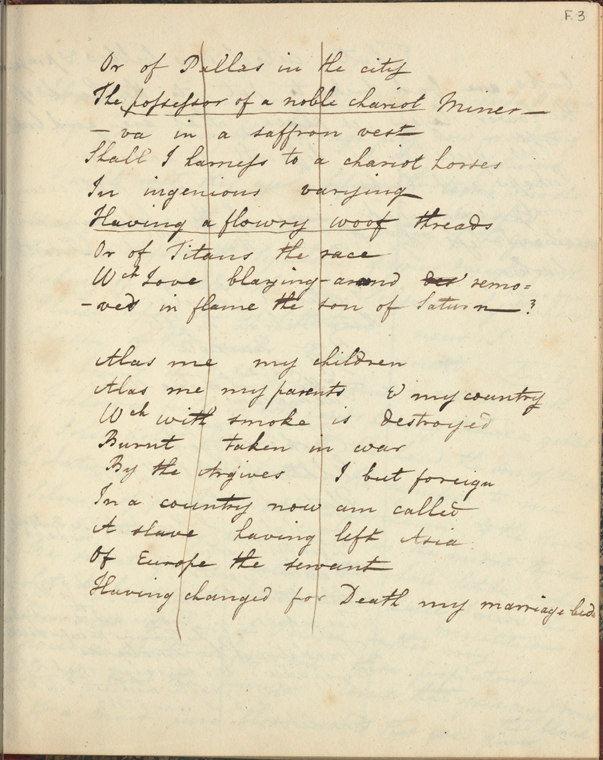 F. 3
Or of Pallas in the city
The possessor of a noble chariot Miner-
-va in a saffron vest
Shall I harness to a chariot horses
In ingenious varying
Having a flowry woof threads
Or of Titans the race
Wch Jove blazing-around remo=
-ved in flame the son of Saturn ?
Alas me my children
Alas me my parents & my country
Wch with smoke is destroyed
Burnt taken in war
By the Argives I but foreign
In a country now am called
A slave having left Asia
Of Europe the servant
Having changed for Death my marriage bed